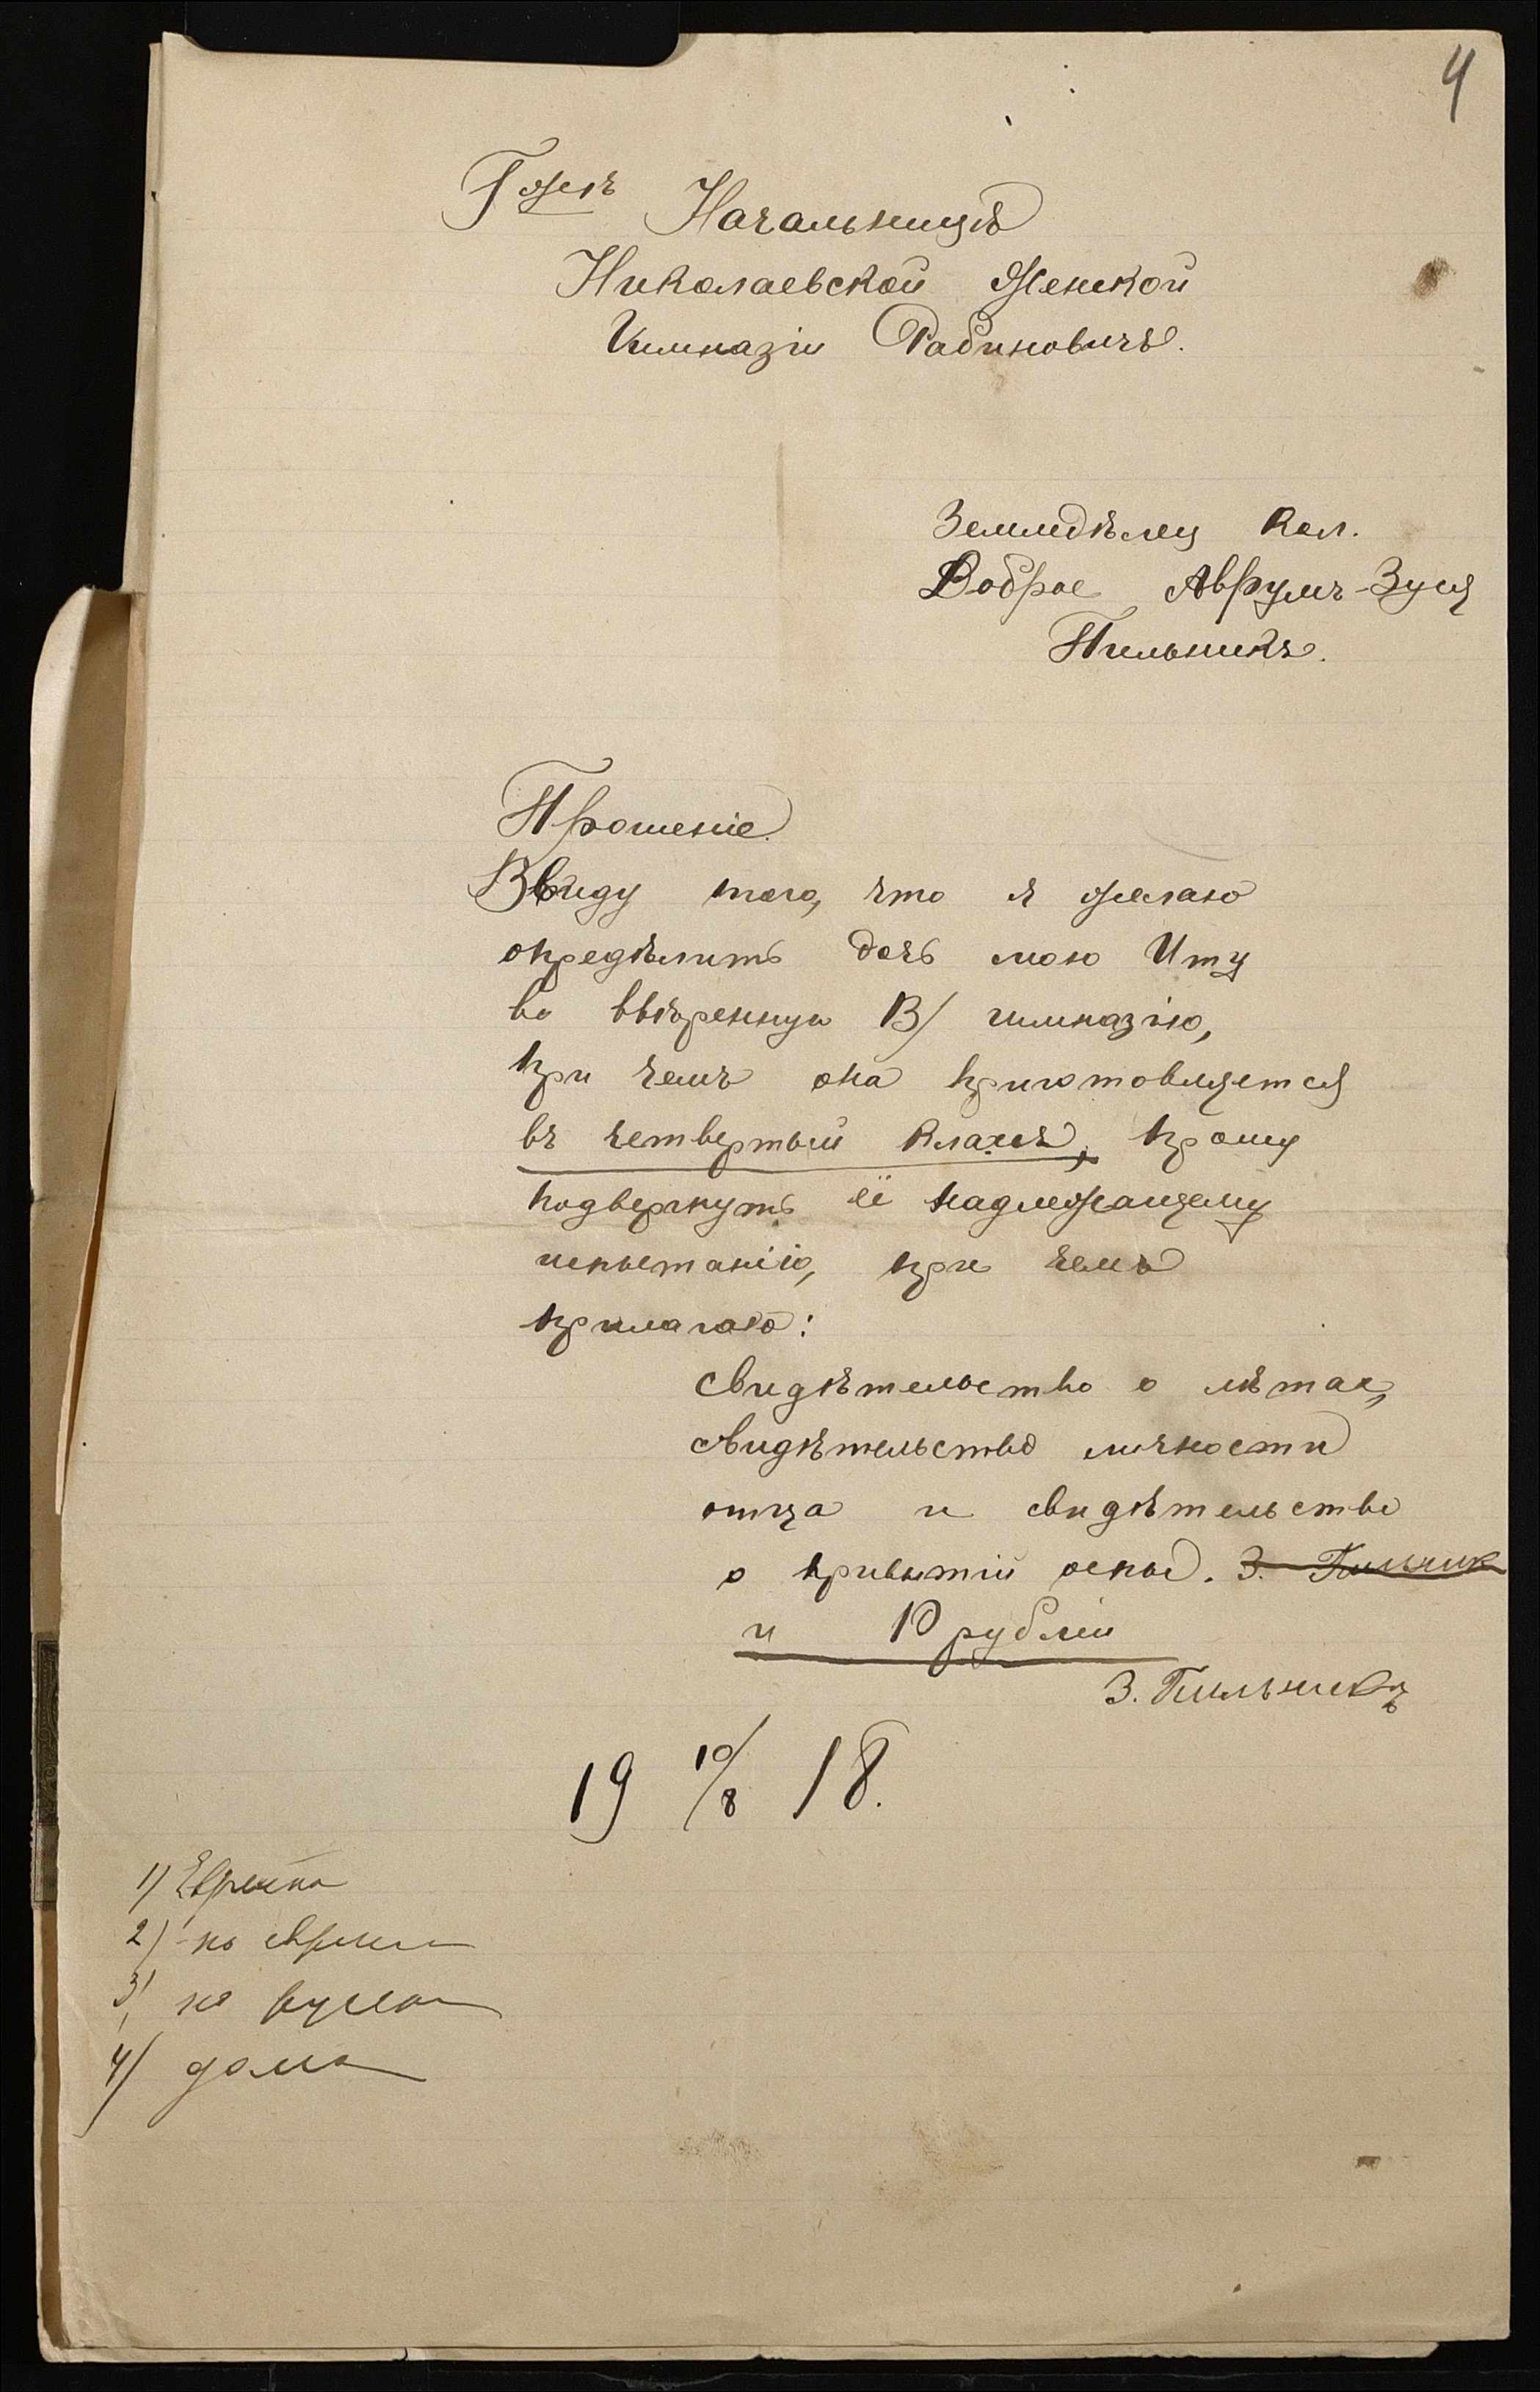 4
Г-жѣ Начальницѣ
Николаевской Женской
Гимназіи Рабиновичъ.
Земледѣлец Кол.
Доброе Аврумъ-Зуся
Пильникъ.
Прошеніе.
Ввиду того, что я желаю
опредѣлить дочь мою Иту
во ввѣренную В/ гимназію,
при чемъ она приготовляется
въ четвертый классъ, прошу
подвергнуть её надлежащему
испытанію, при чемъ
прилагаю:
свидѣтельство о лѣтах,
свидѣтельство личности
отца и свидѣтельство
о привитіи оспы. З. Пильник
и 10 рублей
З. Пильникъ
19 10/8 18.
1) Еврейка
2) по еврейс
3) не
4) дома